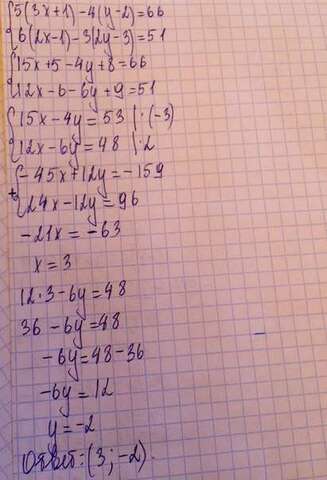 {5(3x+1)-4(y-2)=66
{6(2x-1)-3(2y-3)=51
{15x+5-4y+8=66
{12x-6-6y+9=51
{15x-4y=53 |·(-3)
{12x-6y=48 |·2
{-45x+12y=-159
+{24x-12y=96
-21x=-63
x=3
12·3-6y=48
36-6y=48
-6y=48-36
-6y=12
y=-2
Ответ: (3; -2).